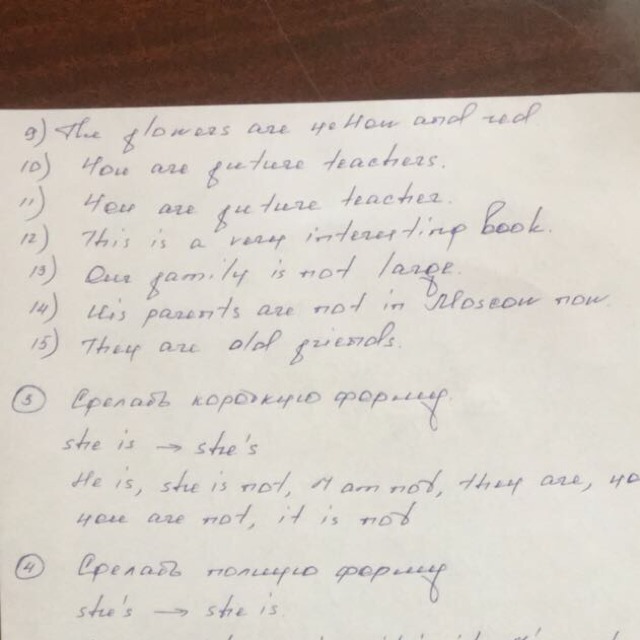 9) The flowers are yellow and red
10) You are future teachers.
11) You are future teacher.
12) This is a very interesting book.
13) Our family is not large.
14) His parents are not in Moscow now.
15) They are old friends.
3 Сделать короткую форму.
she is → she's
He is, she is not, I am not, they are,
you are not, it is not
4 Сделать полную форму
she's → she is.